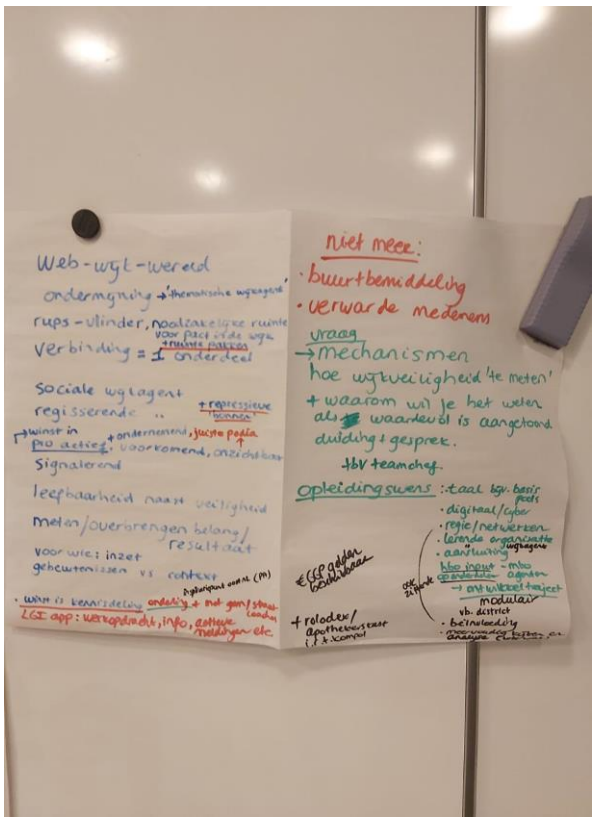 Web-wijk-wereld
ondermijning → 'thematische wijkagent'
rups-vlinder, noodzakelijke ruimte
voor pact in de wijk
+ ruimte pakken
verbinding = 1 onderdeel
Sociale wijkagent
regisserende " + repressieve
kennen
→ winst in + ondernemend, juiste podia
pro actief, voorkomend, onzichtbaar
Signalerend
leefbaarheid naast veiligheid
meten/overbrengen belang/
resultaat
voor wie: inzet
gebeurtenissen vs context
• winst is kennisdeling onderling + met gem/straat
LGI app: werkopdracht, info, actieve
meldingen etc
niet meer:
• buurtbemiddeling
• verwarde medemens
vraag
→ mechanismen
hoe wijkveiligheid 'te meten'
+ waarom wil je het weten
als waardevol is aangetoond
duiding + gesprek.
tbv teamchef.
opleidingswens: • taal bgv. basis
• digitaal/cyber
• regie/netwerken
• lerende organisatie
• aansluiting wijkagent
hbo input - mbo
agenten
→ ontwikkeltraject
modulair
vb. district
• beïnvloeding
analyse
€ GGP gelden
beschikbaar
+ rolodex/
apothekerskast